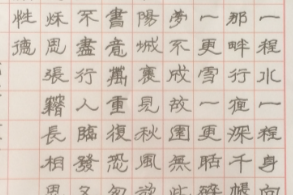 一程水一程身向
那畔行夜深千帳
一更雪一更聒碎
夢不成故園無此
陽城裏見秋風欲
書意萬重復恐匆
不盡行人臨發又
秋思張籍長相思
性德